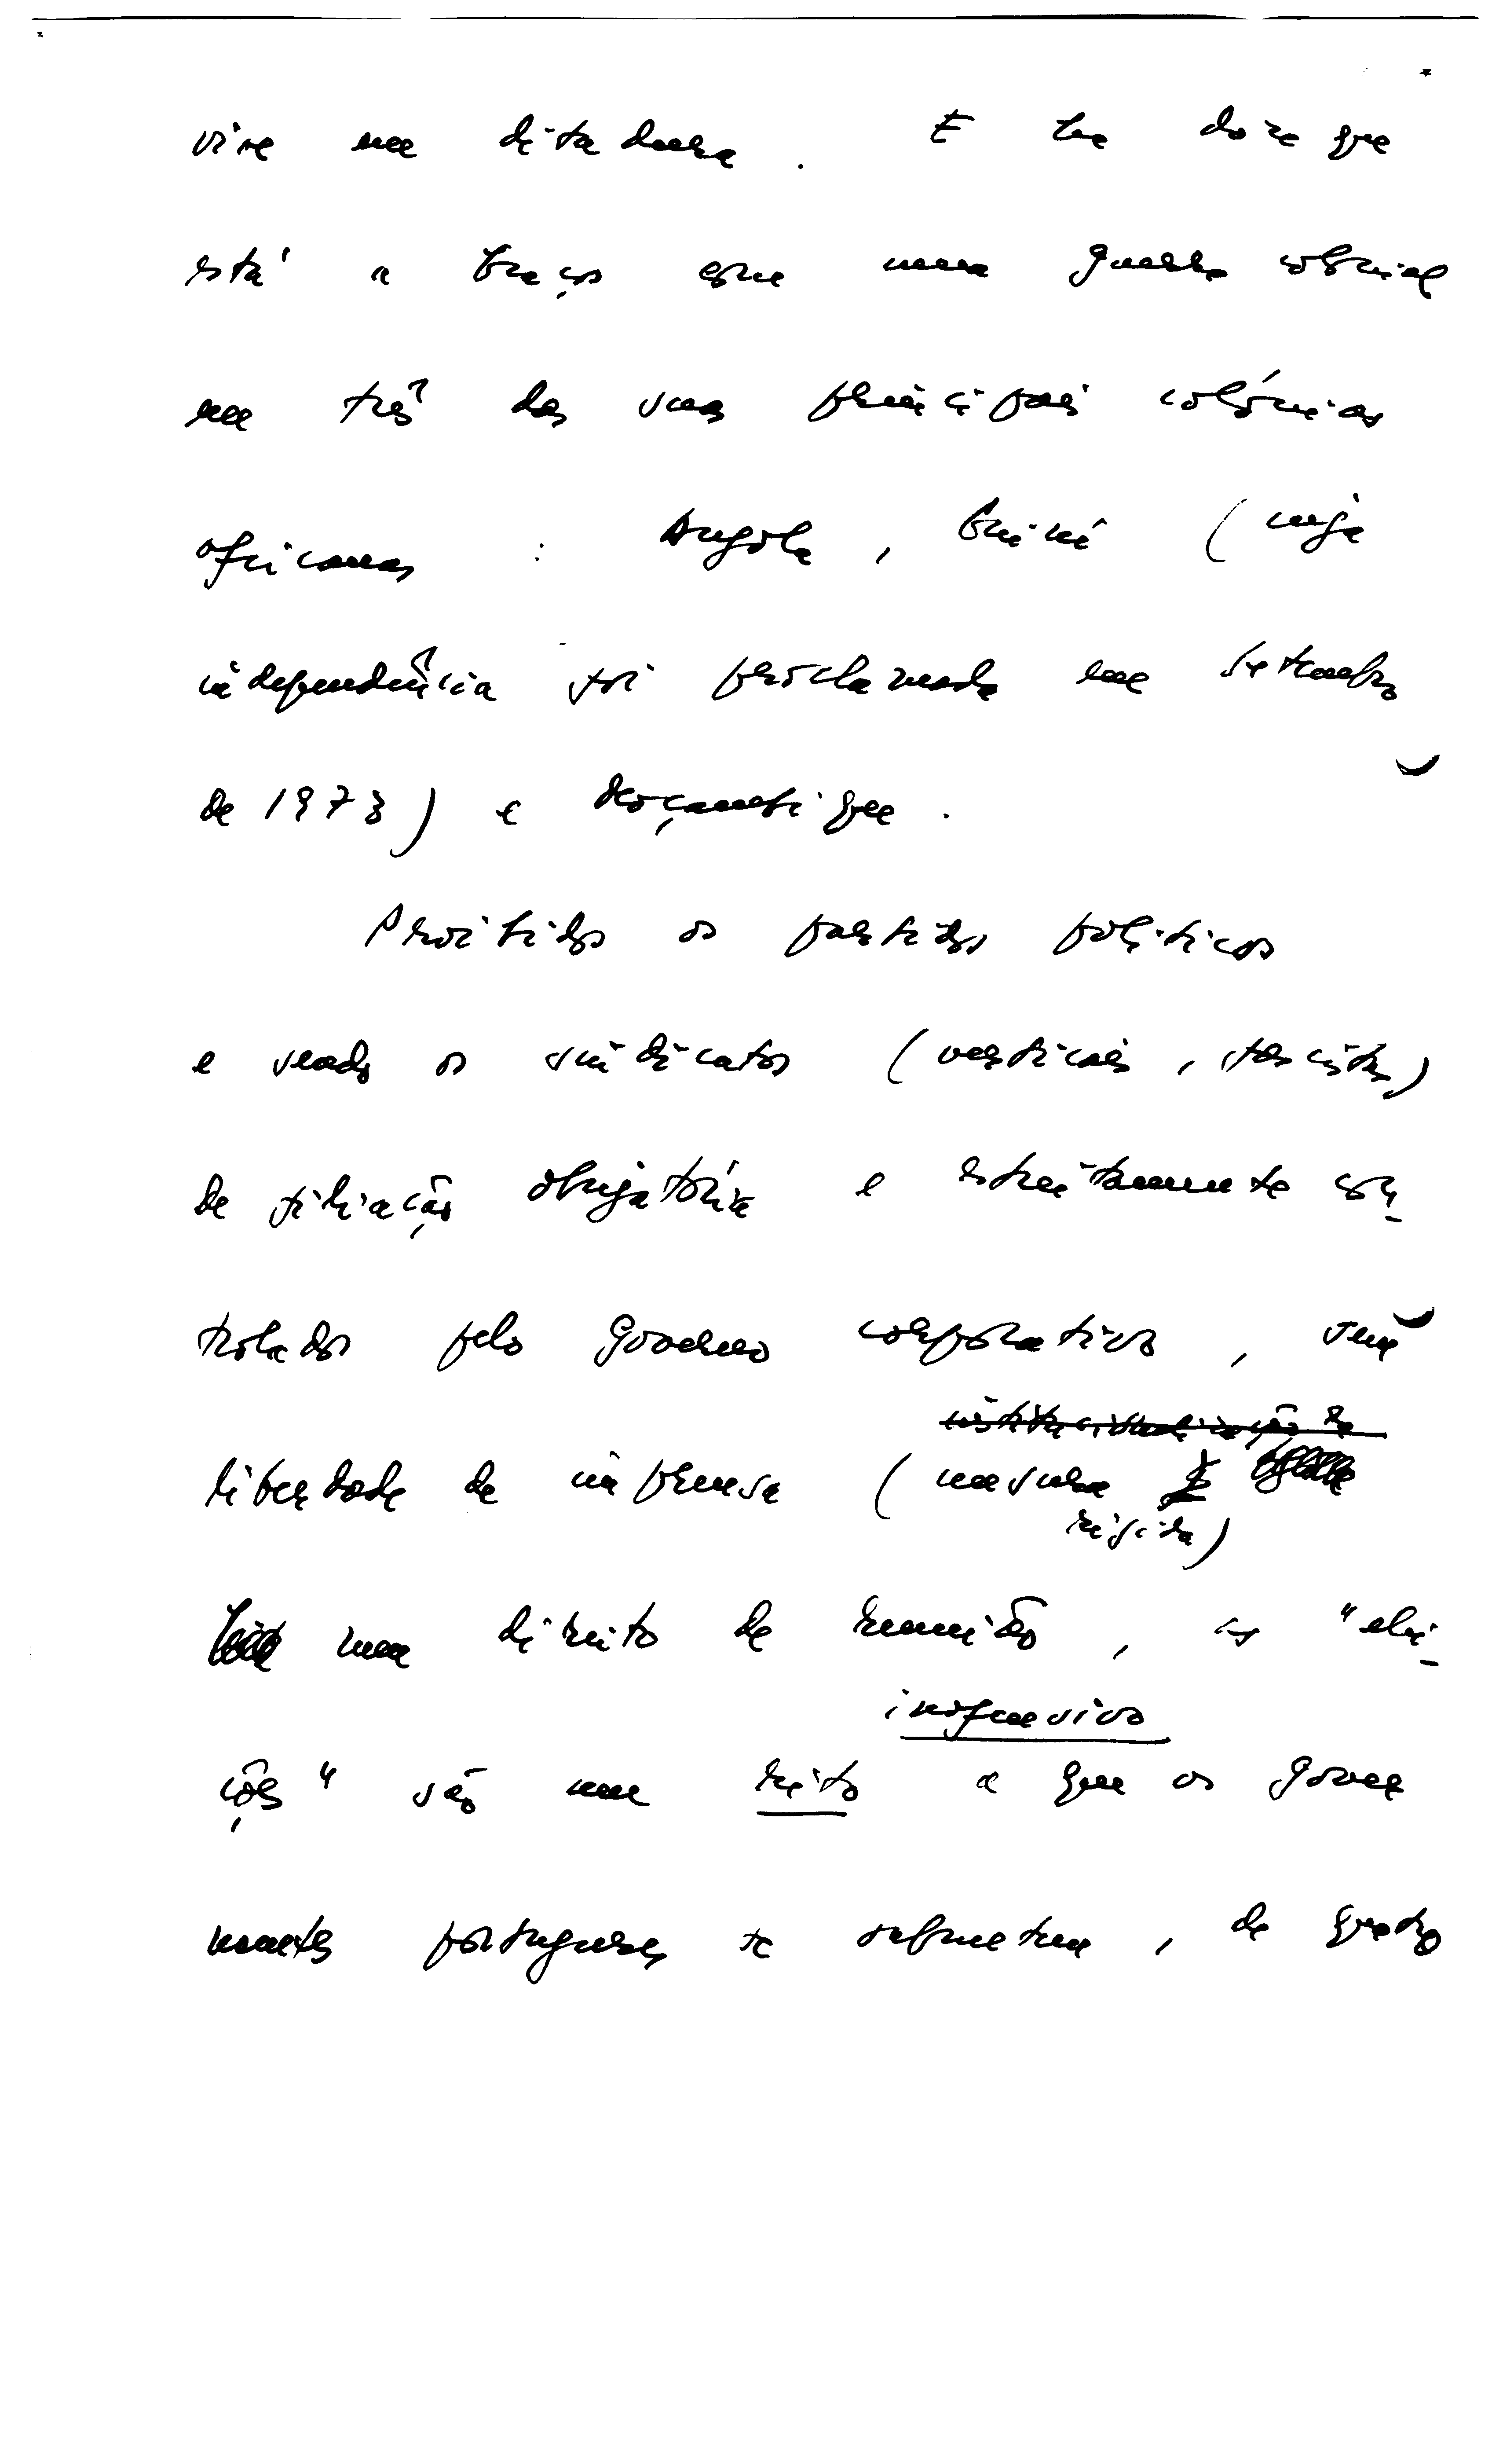 vive em ditadura. E há doze que
está a braços com uma guerra colonial
em três das suas principais colónias
africanas : Angola, Guiné (cuja
independência foi proclamada em Setembro
de 1973) e Moçambique.
Proibidos os partidos políticos
e sendo os sindicatos (verticais, fascistas)
de filiação obrigatória e estreitamente con-
trolados pelo Governo corporativo, sem
liberdade de imprensa (censura
rígida)
nem direito de reunião, as "elei-
inofensivo
ções" são um rito a que os gover
nantes portugueses se submetem, de quatro